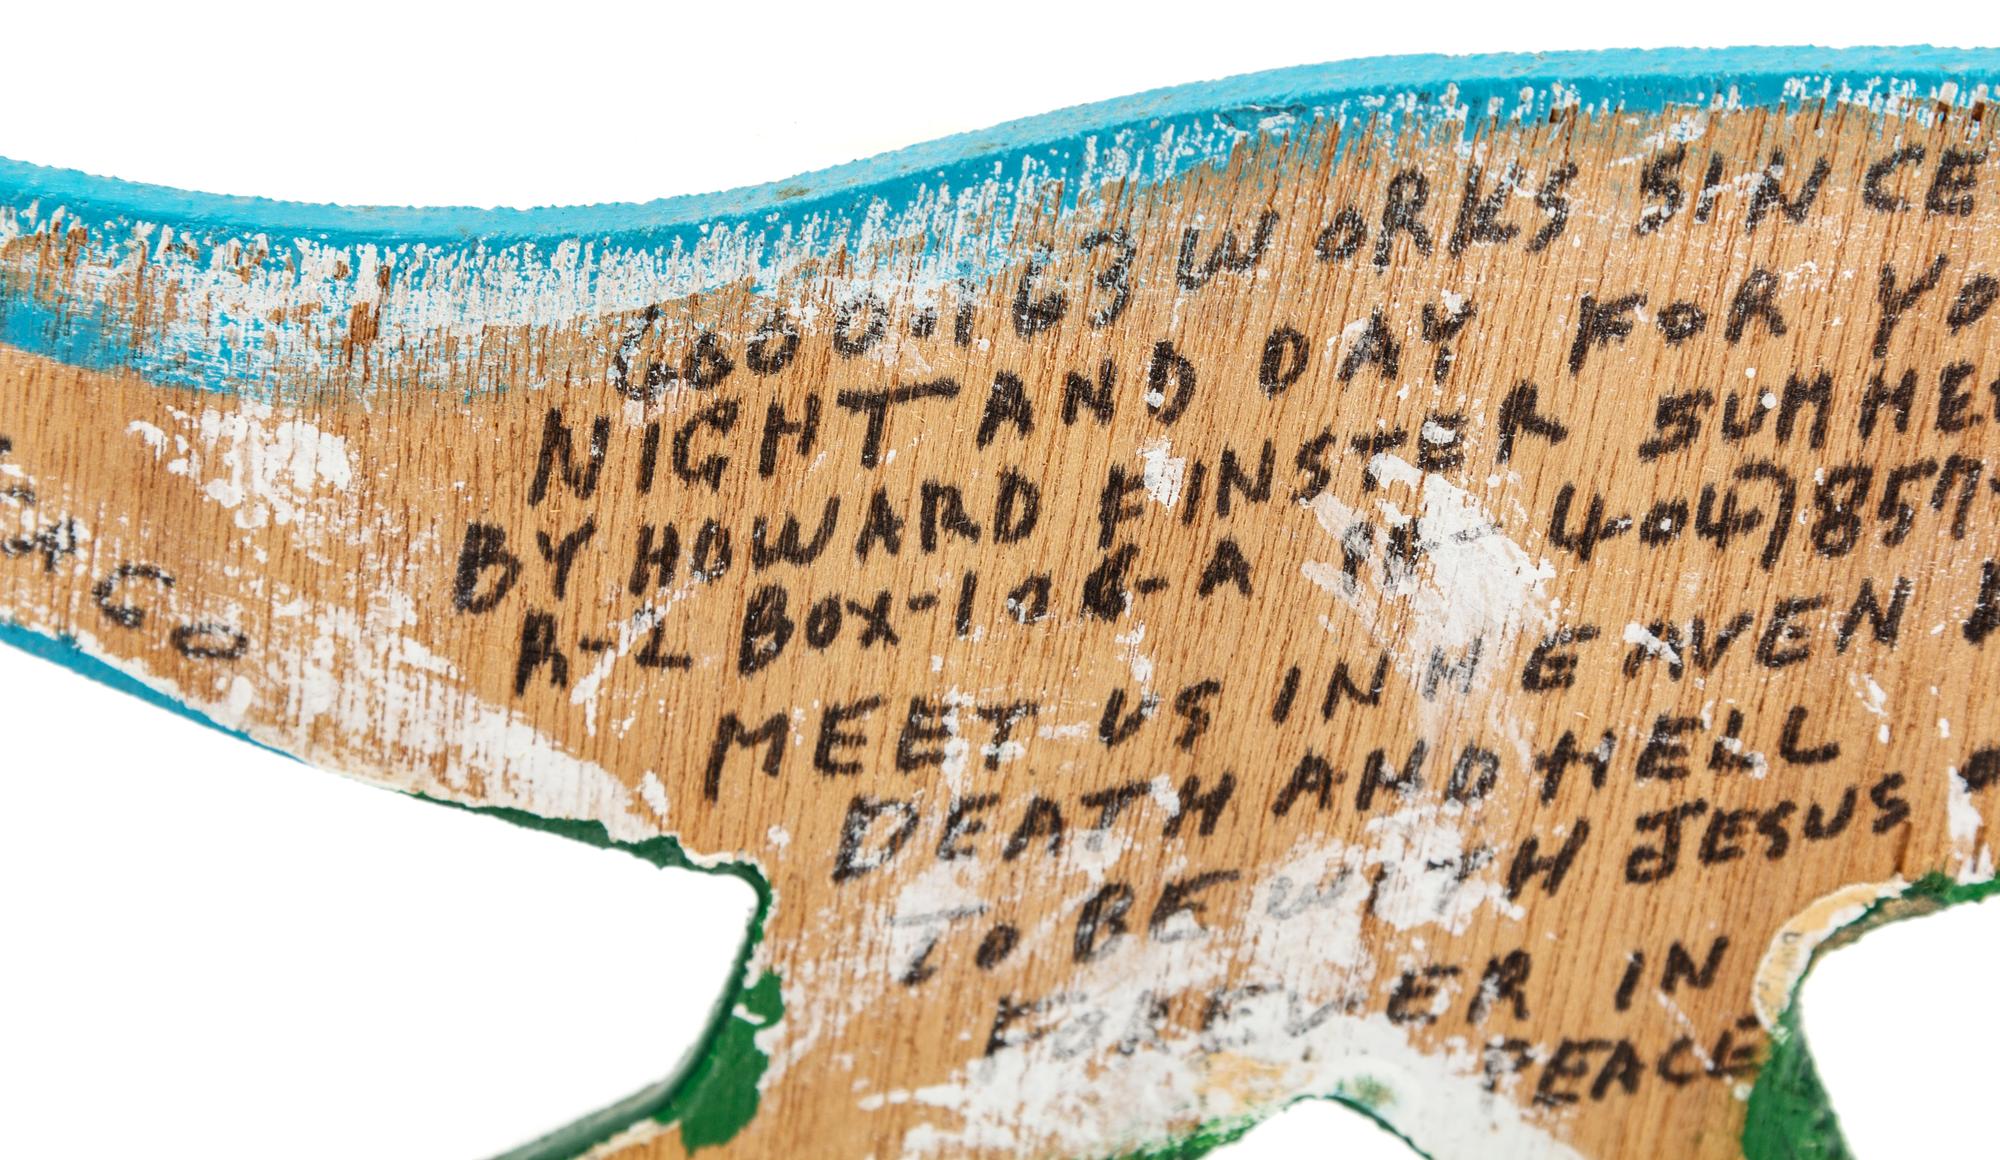 6000.163 WORKS SINCE
NIGHT AND DAY FOR YO
BY HOWARD FINSTER SUMME
R-2 BOX-106-A 4047857
MEET US IN HEAVEN
DEATH AND HELL
TO BE WITH JESUS
FOREVER IN
PEACE
GO